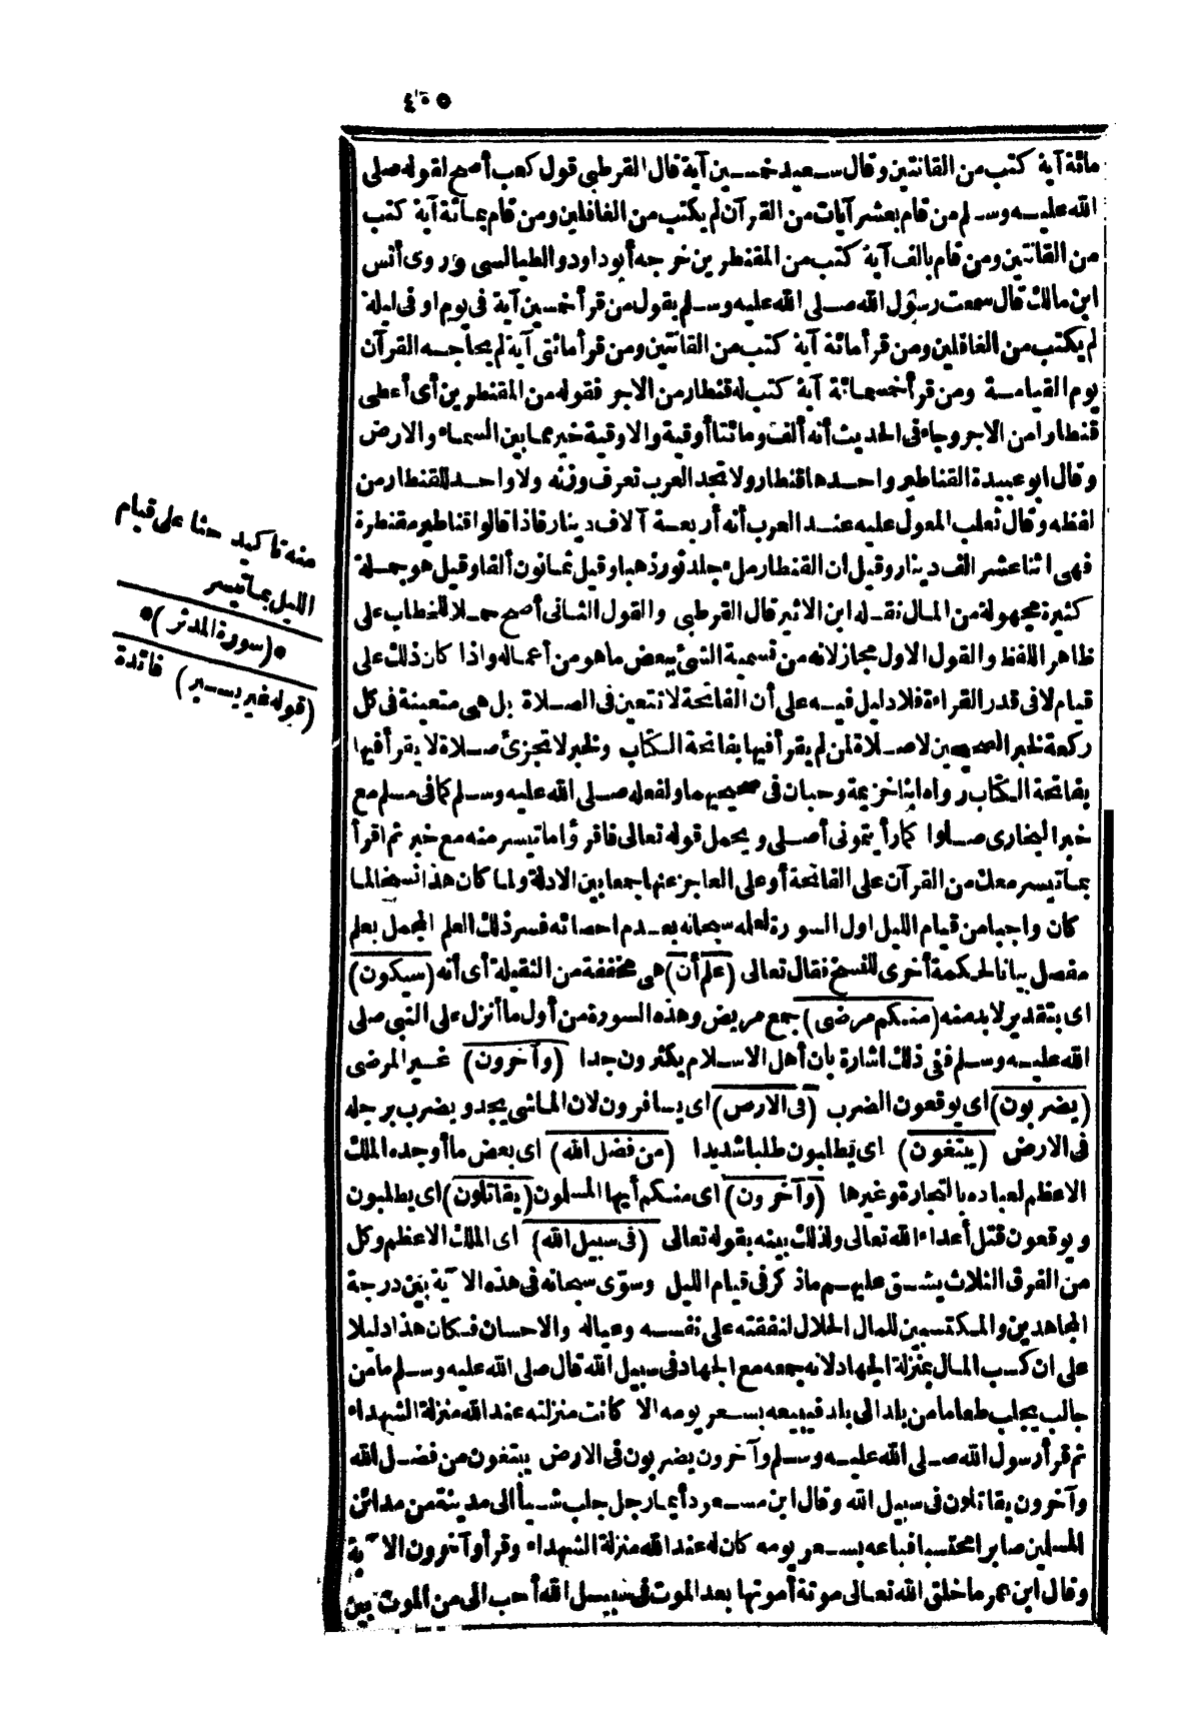 ٤٠٥
مائة آية كتب من القانتين وقال سعيد خمسين آية قال القرطبي قول كعب أصح لقوله صلى
الله عليه وسلم من قام بعشر آيات من القرآن لم يكتب من الغافلين ومن قام بمائة آية كتب
من القانتين ومن قام بألف آية كتب من المقنطرين خرجه أبو داود والطيالسي وروى أنس
ابن مالك قال سمعت رسول الله صلى الله عليه وسلم يقول من قرأ خمسين آية في يوم او في ليلة
لم يكتب من الغافلين ومن قرأ مائة آية كتب من القانتين ومن قرأ مائتى آية لم يحاججه القرآن
يوم القيامة ومن قرأ خمسمائة آية كتب له قنطار من الاجر فقوله من المقنطرين أى أعطى
قنطارا من الاجر وجاء في الحديث أنه ألف ومائتا أوقية والاوقية خير مما بين السماء والارض
وقال ابو عبيدة القناطير واحدها قنطار ولا تجد العرب تعرف وزنه ولا واحد للقنطار من
لفظه وقال ثعلب المعول عليه عند العرب أنه أربعة آلاف دينار فاذا قالوا قناطير مقنطرة
فهى اثنا عشر الف دينار وقيل ان القنطار ملء جلد ثور ذهبا وقيل ثمانون ألفا وقيل هو جملة
كثيرة مجهولة من المال نقله ابن الاثير قال القرطبي والقول الثانى أصح حملا للخطاب على
ظاهر اللفظ والقول الاول مجاز لانه من تسمية الشئ ببعض ما هو من أعماله واذا كان ذلك على
قيام لا في قدر القراءة فلا دليل فيه على أن الفاتحة لا تتعين في الصلاة بل هى متعينة في كل
ركعة لخبر الصحيحين لا صلاة لمن لم يقرأ فيها بفاتحة الكتاب ولخبر لا تجزئ صلاة لا يقرأ فيها
بفاتحة الكتاب رواه ابنا خزيمة وحبان في صحيحيهما ولفعله صلى الله عليه وسلم كما في مسلم مع
خبر البخارى صلوا كما رأيتمونى أصلى ويحمل قوله تعالى فاقرؤا ما تيسر منه مع خبر ثم اقرأ
بما تيسر معك من القرآن على الفاتحة أو على العاجز عنها جمعا بين الادلة ولما كان هذا نسخا لما
كان واجبا من قيام الليل اول السورة لعلمه سبحانه بعدم احصائه فسر ذلك العلم المجمل بعلم
مفصل بيانا لحكمة أخرى للنسخ فقال تعالى (علم أن) هى مخففة من الثقيلة أى أنه (سيكون)
اى بتقدير لا بد منه (منكم مرضى) جمع مريض وهذه السورة من أول ما أنزل على النبي صلى
الله عليه وسلم ففي ذلك اشارة بان أهل الاسلام يكثرون جدا (وآخرون) غير المرضى
(يضربون) اى يوقعون الضرب (فى الارض) اى يسافرون لان الماشى يجد ويضرب برجله
فى الارض (يبتغون) اى يطلبون طلبا شديدا (من فضل الله) اى بعض ما أوجده الملك
الاعظم لعباده بالتجارة وغيرها (وآخرون) اى منكم أيها المسلمون (يقاتلون) اى يطلبون
ويوقعون قتل أعداء الله تعالى ولذلك بينه بقوله تعالى (فى سبيل الله) اى الملك الاعظم وكل
من الفرق الثلاث يشق عليهم ما ذكر في قيام الليل وسوّى سبحانه في هذه الآية بين درجة
المجاهدين والمكتسبين للمال الحلال لنفقته على نفسه وعياله والاحسان فكان هذا دليلا
على ان كسب المال بمنزلة الجهاد لانه جمعه مع الجهاد في سبيل الله قال صلى الله عليه وسلم ما من
جالب يجلب طعاما من بلد الى بلد فيبيعه بسعر يومه الا كانت منزلته عند الله منزلة الشهداء
ثم قرأ رسول الله صلى الله عليه وسلم وآخرون يضربون في الارض يبتغون من فضل الله
وآخرون يقاتلون في سبيل الله وقال ابن مسعود أيما رجل جلب شيأ الى مدينة من مدائن
المسلمين صابرا محتسبا فباعه بسعر يومه كان له عند الله منزلة الشهداء وقرأ وآخرون الآية
وقال ابن عمر ما خلق الله تعالى موتة أموتها بعد الموت في سبيل الله أحب الى من الموت بين
منه تأكيد حثا على قيام
الليل بما تيسر
*(سورة المدثر)*
(قوله غير يسير) فائدة